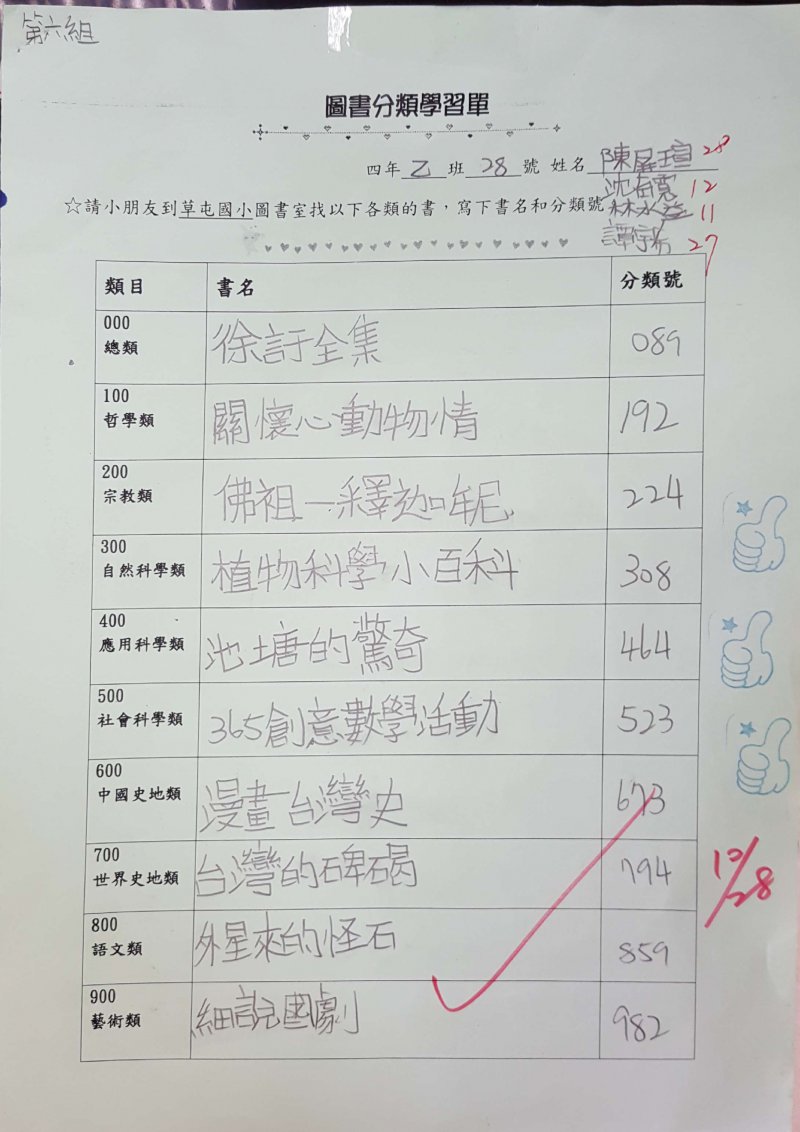 第六組
圖書分類學習單
四年乙班28號 姓名陳屏瑄28
沈宥霓12
☆請小朋友到草屯國小圖書室找以下各類的書，寫下書名和分類號
林永益11
譚宇希27
類目 書名 分類號
000
總類 徐訏全集 089
100
哲學類 關懷心動物情 192
200
宗教類 佛祖—釋迦牟尼 224
300
自然科學類 植物科學小百科 308
400
應用科學類 池塘的驚奇 464
500
社會科學類 365創意數學活動 523
600
中國史地類 漫畫台灣史 673
700
世界史地類 台灣的碑碣 794
800
語文類 外星來的怪石 859
900
藝術類 細說國劇 982
10/28